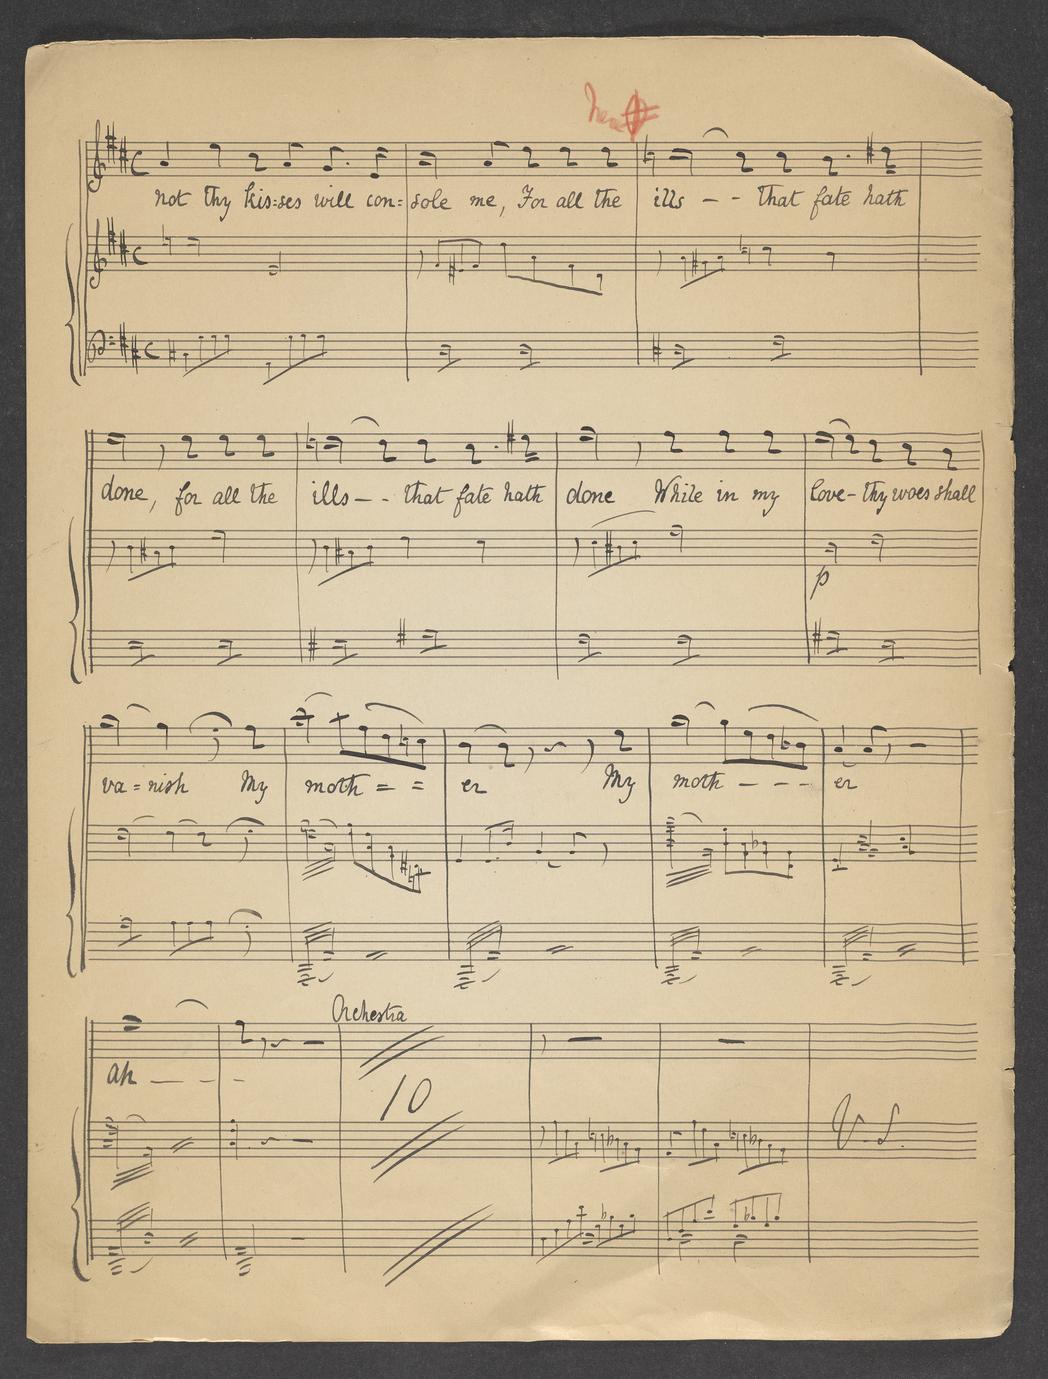 not thy kis=ses will con=sole me, For all the ills - - That fate hath
done, for all the ills - - that fate hath done While in my love - thy woes shall
p
va=nish My moth = = er My moth - - - er
Orchestra
ah - - - -
10
V. S.